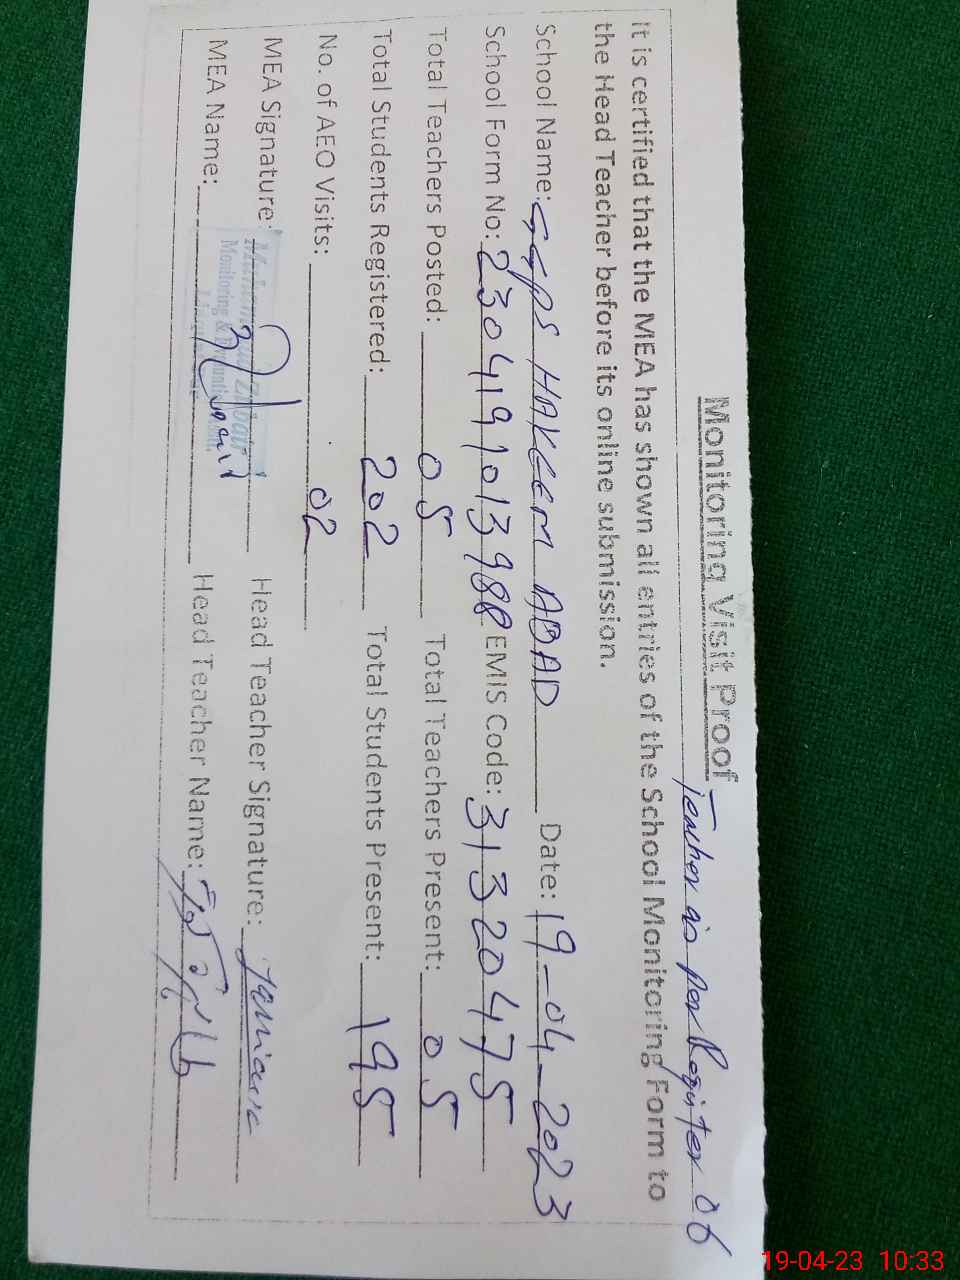 Monitoring Visit Proof
Teacher as per Register 06
It is certified that the MEA has shown all entries of the School Monitoring Form to
the Head Teacher before its online submission.
School Name: GGPS HAKEEM ABAD Date: 19-04-2023
School Form No: 2304191013988 EMIS Code: 31320475
Total Teachers Posted: 05 Total Teachers Present: 05
Total Students Registered: 202 Total Students Present: 195
No. of AEO Visits: 02
MEA Signature: Head Teacher Signature:
MEA Name: Head Teacher Name:
Monitoring &
19-04-23 10:33